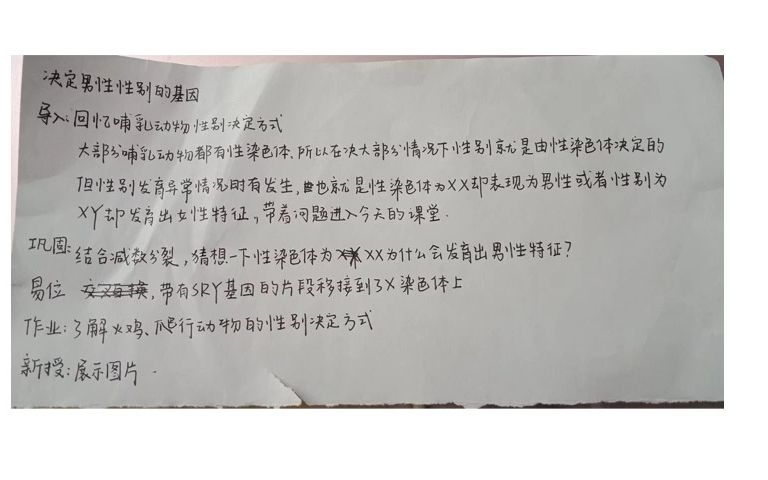 决定男性性别的基因
导入:回忆哺乳动物性别决定方式
大部分哺乳动物都有性染色体、所以在决大部分情况下性别就是由性染色体决定的
但性别发育异常情况时有发生,也就是性染色体为XX却表现为男性或者性别为
XY却发育出女性特征,带着问题进入今天的课堂.
巩固:结合减数分裂,猜想一下性染色体为XX为什么会发育出男性特征?
易位 交叉互换,带有SRY基因的片段移接到了X染色体上
作业:了解火鸡、爬行动物的性别决定方式
新授:展示图片.